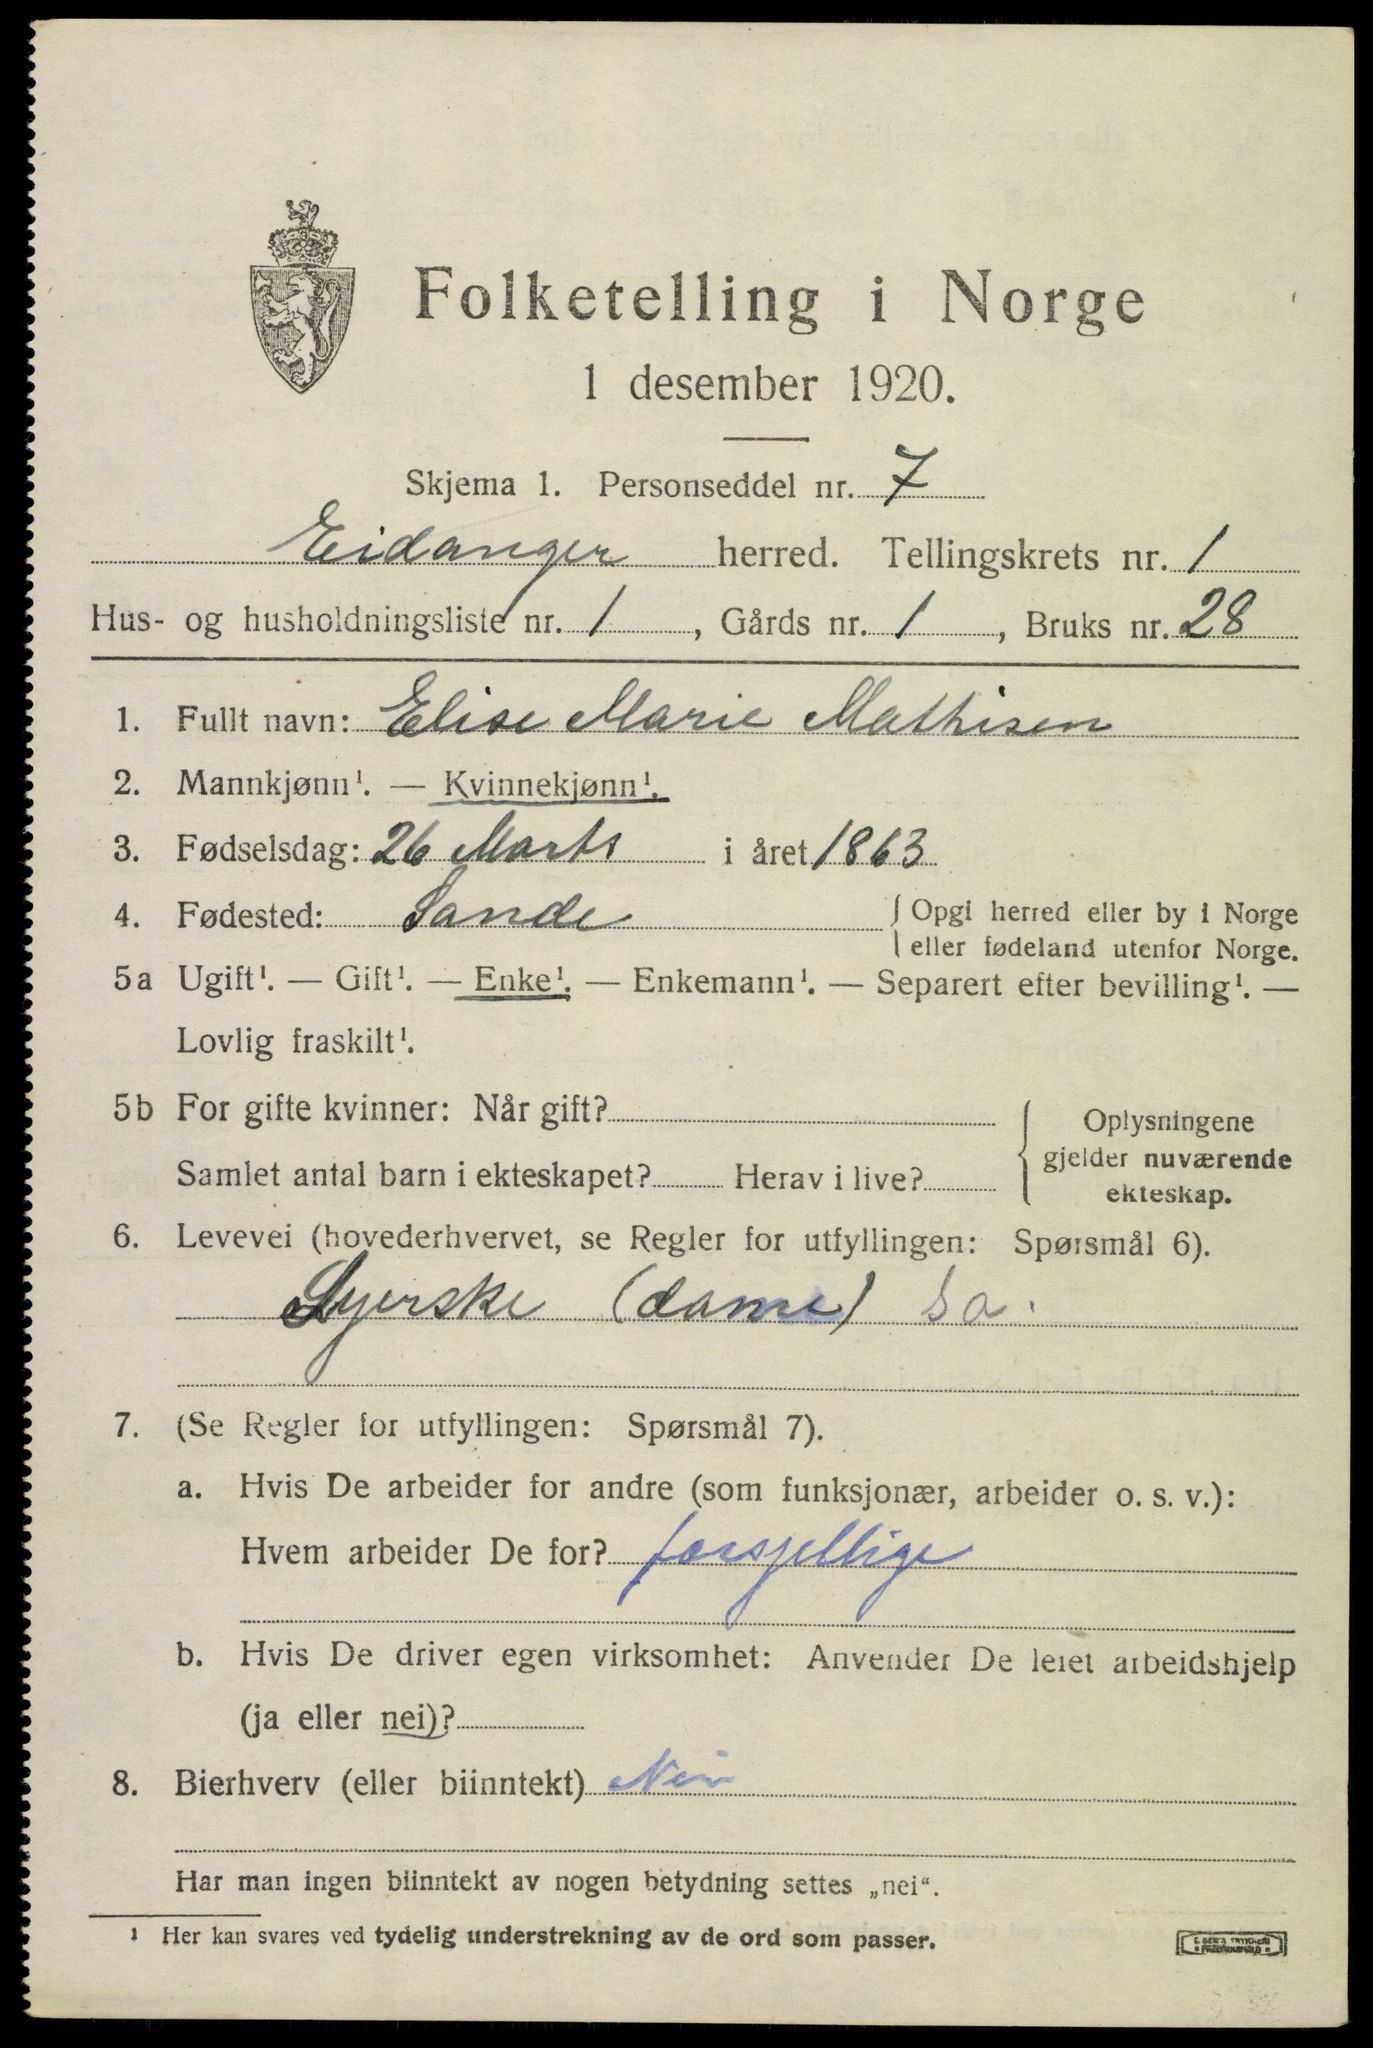 Folketelling i Norge
1 desember 1920.
Skjema 1. Personseddel nr. 7
Eidanger herred. Tellingskrets nr. 1
Hus- og husholdningsliste nr. 1, Gårds nr. 1, Bruks nr. 28
1. Fullt navn: Elise Marie Mathisen
2. Mannkjønn¹. — Kvinnekjønn¹.
3. Fødselsdag: 26 Marts i året 1863
4. Fødested: Sande { Opgi herred eller by i Norge
eller fødeland utenfor Norge.
5a Ugift¹. — Gift¹. — Enke¹. — Enkemann¹. — Separert efter bevilling¹. —
Lovlig fraskilt¹.
5b For gifte kvinner: Når gift?
Samlet antal barn i ekteskapet? Herav i live?
{ Oplysningene
gjelder nuværende
ekteskap.
6. Levevei (hovederhvervet, se Regler for utfyllingen: Spørsmål 6).
Syerske (dame) sa.
7. (Se Regler for utfyllingen: Spørsmål 7).
a. Hvis De arbeider for andre (som funksjonær, arbeider o. s. v.):
Hvem arbeider De for? forsjellige
b. Hvis De driver egen virksomhet: Anvender De leiet arbeidshjelp
(ja eller nei)?
8. Bierhverv (eller biinntekt) Nei
Har man ingen biinntekt av nogen betydning settes „nei“.
¹ Her kan svares ved tydelig understrekning av de ord som passer.